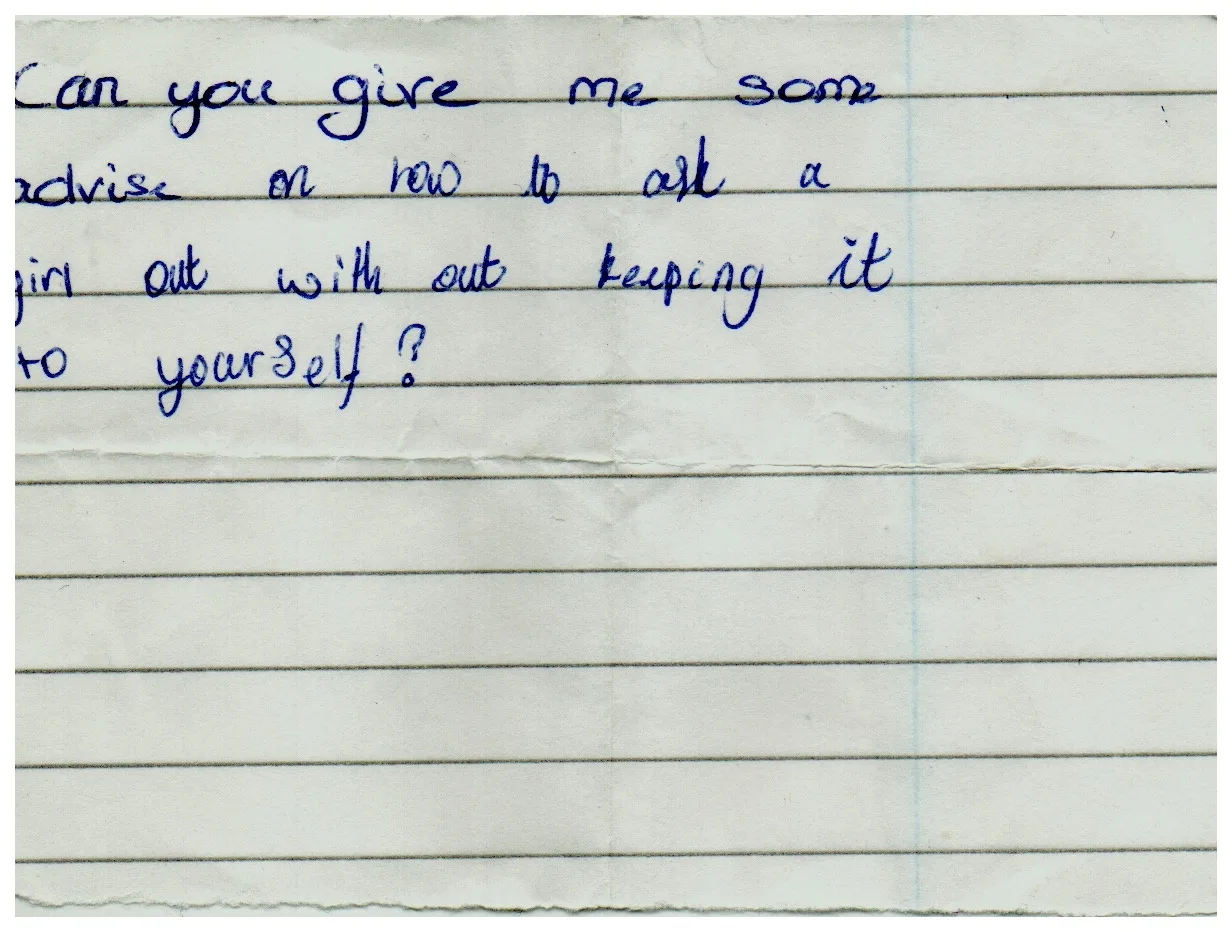 Can you give me some
advise on how to ask a
girl out with out keeping it
to yourself?